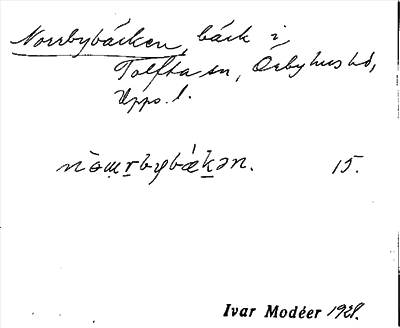 Norrbybäcken, bäck i
Tolfta sn, Örbyhus hd,
Upps. l.
nòɯrbybǽkən. 15.
Ivar Modéer 1928.